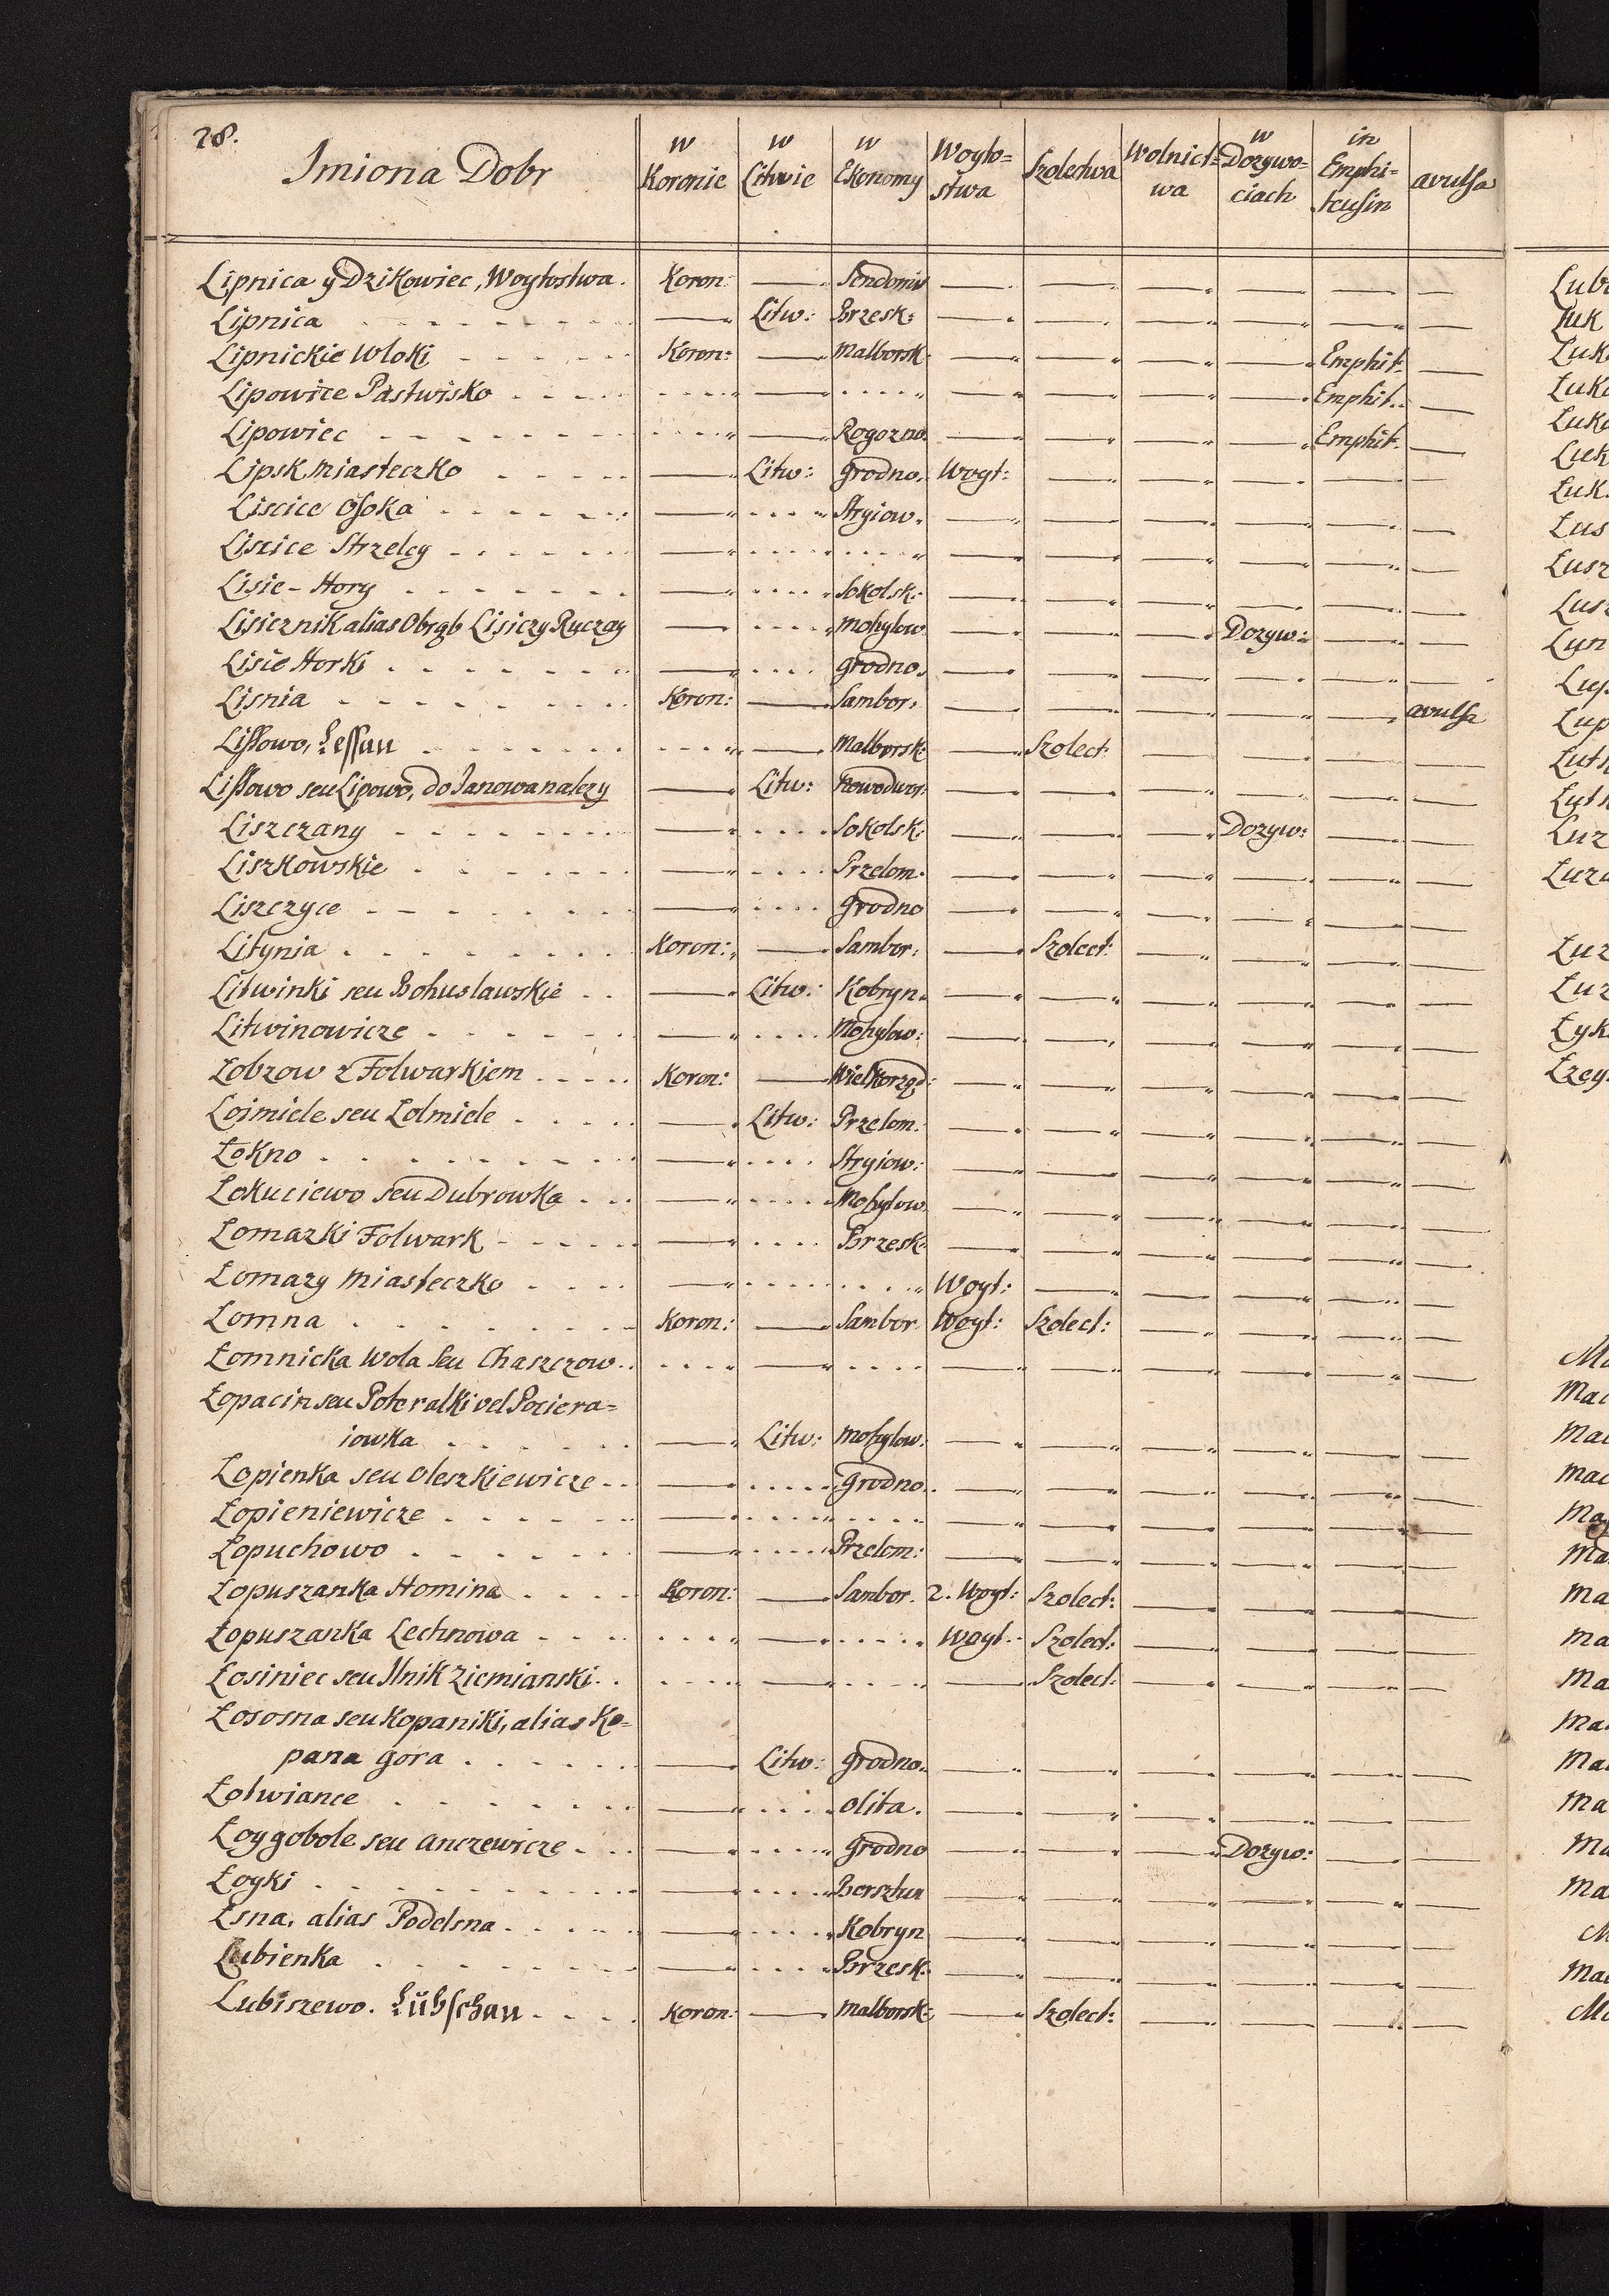 28.
Imiona Dobr | w Koronie | w Litwie | w Ekonomy | Woyto=stwa | Szolectwa | Wolnict=wa | w Dozywo=ciach | in Emphi=teusin | avulsa
Lipnica y Dzikowiec, Woytostwa. Koron: — Sendomir — — — — — —
Lipnica — Litw: Brzesk: — — — — — —
Lipnickie Wloki Koron: — Malborsk: — — — — Emphit: —
Lipowice Pastwisko . . . . — . . . . — — — — Emphit: —
Lipowiec . . . . — Rogozno. — — — — Emphit: —
Lipsk Miasteczko — Litw: Grodno. Woyt: — — — — —
Liscice Osoka — . . . . Stryiow. — — — — — —
Liszice Strzelcy — . . . . . . . . — — — — — —
Lisie-Hory — . . . . Sokolsk: — — — — — —
Lisicznik alias Obrąb Lisiczy Ruczay — . . . . Mohylow. — — — Dozyw: — —
Lisie Horki — . . . . Grodno. — — — — — —
Lisnia Koron: — Sambor. — — — — — avulsa
Lissowo, Lessau . . . . — Malborsk: — Szolect: — — — —
Lissowo seu Lipowo, do Janowa nalezy — Litw: Nowodwor: — — — — — —
Liszczany — . . . . Sokolsk: — — — Dozyw: — —
Liszkowskie — . . . . Przelom. — — — — — —
Liszczyce — . . . . Grodno — — — — — —
Litynia Koron: — Sambor: — Szolect: — — — —
Litwinki seu Bohuslawskie — Litw: Kobryn. — — — — — —
Litwinowicze — . . . . Mohylow: — — — — — —
Łobzow z Folwarkiem Koron: — Wielkorząd: — — — — — —
Loimiele seu Lolmiele — Litw: Przelom: — — — — — —
Łokno — . . . . Stryiow: — — — — — —
Łokuciewo seu Dubrowka — . . . . Mohylow — — — — — —
Lomazki Folwark — . . . . Brzesk: — — — — — —
Lomazy Miasteczko — . . . . . . . . Woyt: — — — — —
Lomna Koron: — Sambor Woyt: Szolect: — — — —
Łomnicka Wola seu Chaszczow . . . . — . . . . — — — — — —
Łopacin seu Poteralki vel Pociera=
iowka — Litw: Mohylow. — — — — — —
Łopienka seu Oleszkiewicze — . . . . Grodno. — — — — — —
Łopieniewicze — . . . . . . . . — — — — — —
Łopuchowo — . . . . Przelom: — — — — — —
Łopuszanka Homina Koron: — Sambor. 2. Woyt: Szolect: — — — —
Łopuszanka Lechnowa . . . . — . . . . Woyt: Szolect: — — — —
Łosiniec seu Ilnik Ziemianski . . . . — . . . . — Szolect: — — — —
Łososna seu Kopaniki, alias Ko=
pana Gora — Litw: Grodno. — — — — — —
Łotwiance — . . . . Olita. — — — — — —
Łoygobole seu Anczewicze — . . . . Grodno — — — Dozyw: — —
Łoyki — . . . . Bersztun — — — — — —
Łsna, alias Podelsna — . . . . Kobryn — — — — — —
Lubienka — . . . . Brzesk: — — — — — —
Lubiszewo. Lübschau Koron: — Malborsk: — Szolect: — — — —